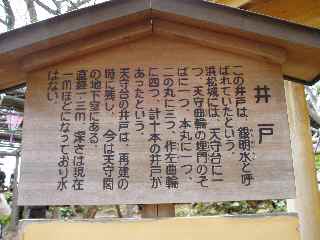 井戸
この井戸は、銀明水と呼
ばれていたという。
浜松城には、天守台に一
つ、天守曲輪の埋門のそ
ばに一つ、本丸に一つ、
二の丸に三つ、作左曲輪
に四つ、計十本の井戸が
あったという。
天守台の井戸は、再建の
時に残し、今は天守閣
の地下室にある。
直径一・三m、深さは現在
一mほどになっており水
はない。